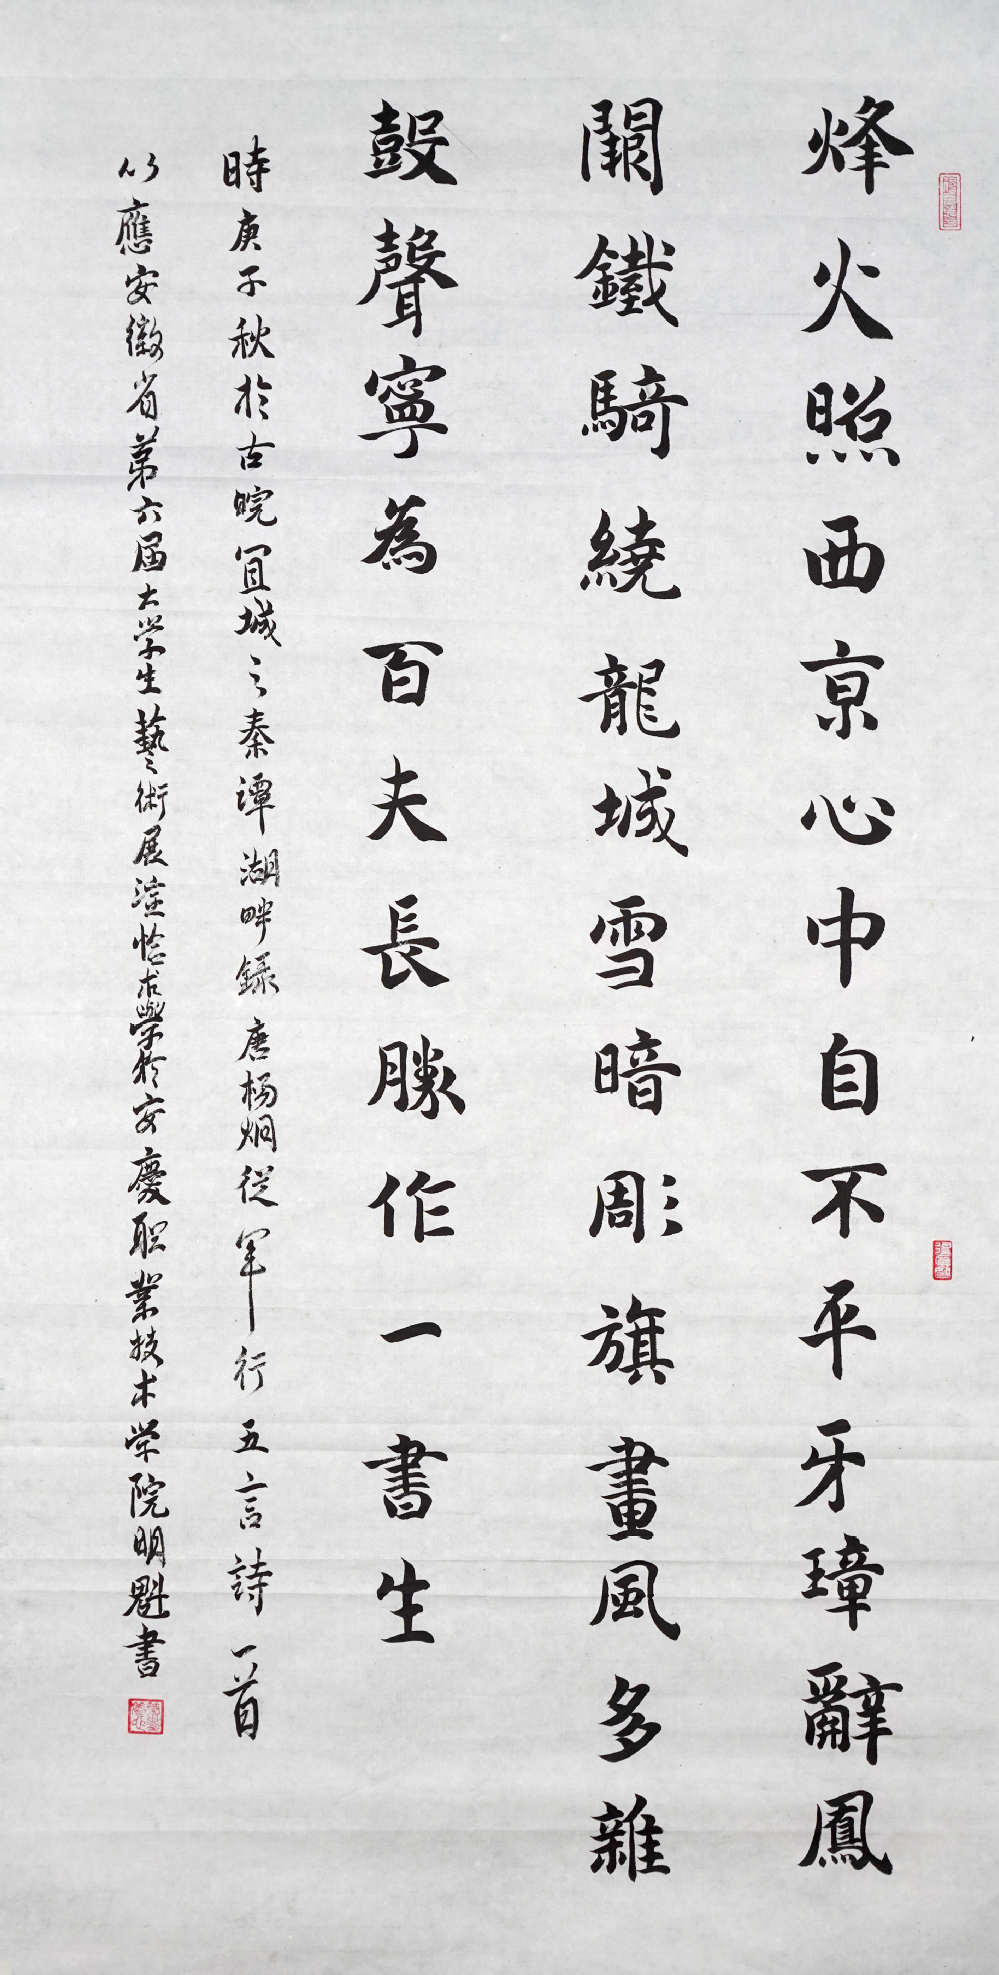 烽火照西京心中自不平牙璋辭鳳
闕鐵騎繞龍城雪暗彫旗畫風多雜
鼓聲寧為百夫長勝作一書生
時庚子秋於古皖宜城之秦譚湖畔錄唐楊炯從軍行五言詩一首
以應安徽省第六届大学生藝術展演恰求學於安慶职業技术学院明魁書